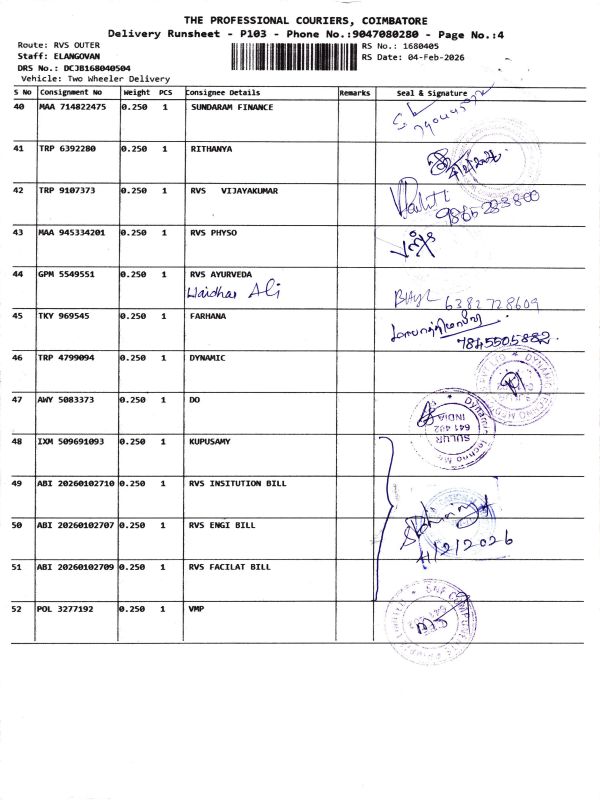 THE PROFESSIONAL COURIERS, COIMBATORE
Delivery Runsheet - P103 - Phone No.:9047080280 - Page No.:4
Route: RVS OUTER
RS No.: 1680405
Staff: ELANGOVAN
RS Date: 04-Feb-2026
DRS No.: DCJB168040504
Vehicle: Two Wheeler Delivery
S No Consignment No Weight PCS Consignee Details Remarks Seal & Signature
40 MAA 714822475 0.250 1 SUNDARAM FINANCE
41 TRP 6392280 0.250 1 RITHANYA
4/2/2026
42 TRP 9107373 0.250 1 RVS VIJAYAKUMAR
9865283800
43 MAA 945334201 0.250 1 RVS PHYSO
44 GPM 5549551 0.250 1 RVS AYURVEDA
Haidhar Ali
6382728609
45 TKY 969545 0.250 1 FARHANA
7845505882
46 TRP 4799094 0.250 1 DYNAMIC
DYNAMIC TECHNO MED
47 AWY 5083373 0.250 1 DO
Dynamic Techno Me
SULUR
641 402
INDIA
48 IXM 509691093 0.250 1 KUPUSAMY
49 ABI 20260102710 0.250 1 RVS INSITUTION BILL
50 ABI 20260102707 0.250 1 RVS ENGI BILL
4/2/2026
51 ABI 20260102709 0.250 1 RVS FACILAT BILL
52 POL 3277192 0.250 1 VMP